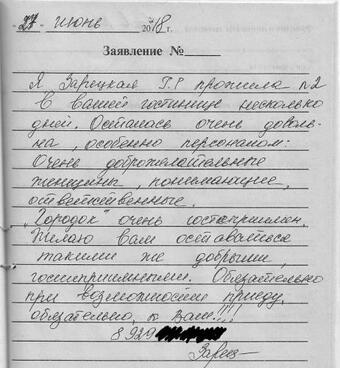 27 июнь 2018 г.
Заявление №
Я Зарецкая Г.Г прожила
в вашей гостинице несколько
дней. Осталась очень доволь-
на, особенно персоналом:
Очень доброжелательные
женщины, понимающие,
ответственные.
„Городок" очень гостеприимен.
Желаю вам оставаться
такими же добрыми,
гостеприимными. Обязательно
при возможности приеду,
обязательно, к Вам!!!
8 929
Зарец